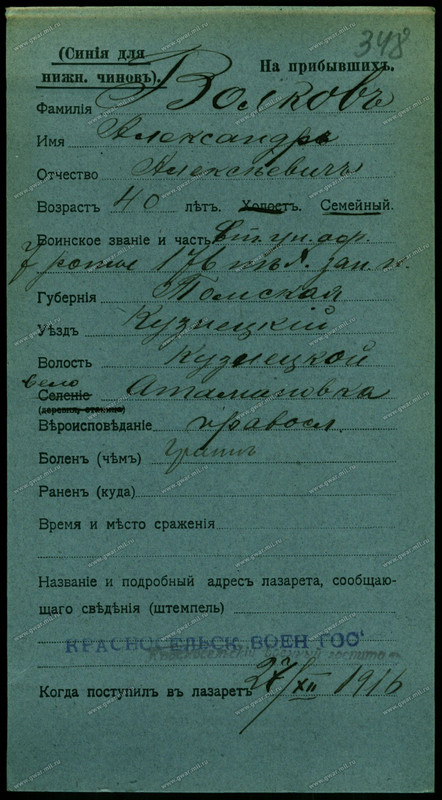 348
(Синія для нижн. чиновъ).
На прибывшихъ.
Фамилія Волковъ
Имя Александръ
Отчество Алексѣевичъ
Возрастъ 40 лѣтъ. Холостъ. Семейный.
Воинское званіе и часть Ст. ун. оф.
7 роты 176 зап. п.
Губернія Томская
Уѣздъ Кузнецкій
Волость Кузнецкой
село
Селеніе Атамановка
(деревня, станица)
Вѣроисповѣданіе правосл.
Боленъ (чѣмъ) Гриппъ
Раненъ (куда)
Время и мѣсто сраженія
Названіе и подробный адресъ лазарета, сообщаю-
щаго свѣдѣнія (штемпель)
КРАСНОСЕЛЬСК. ВОЕН. ГОС
Красносельскій военный госпиталь
Когда поступилъ въ лазаретъ 27/XII 1916
www.gwar.mil.ru